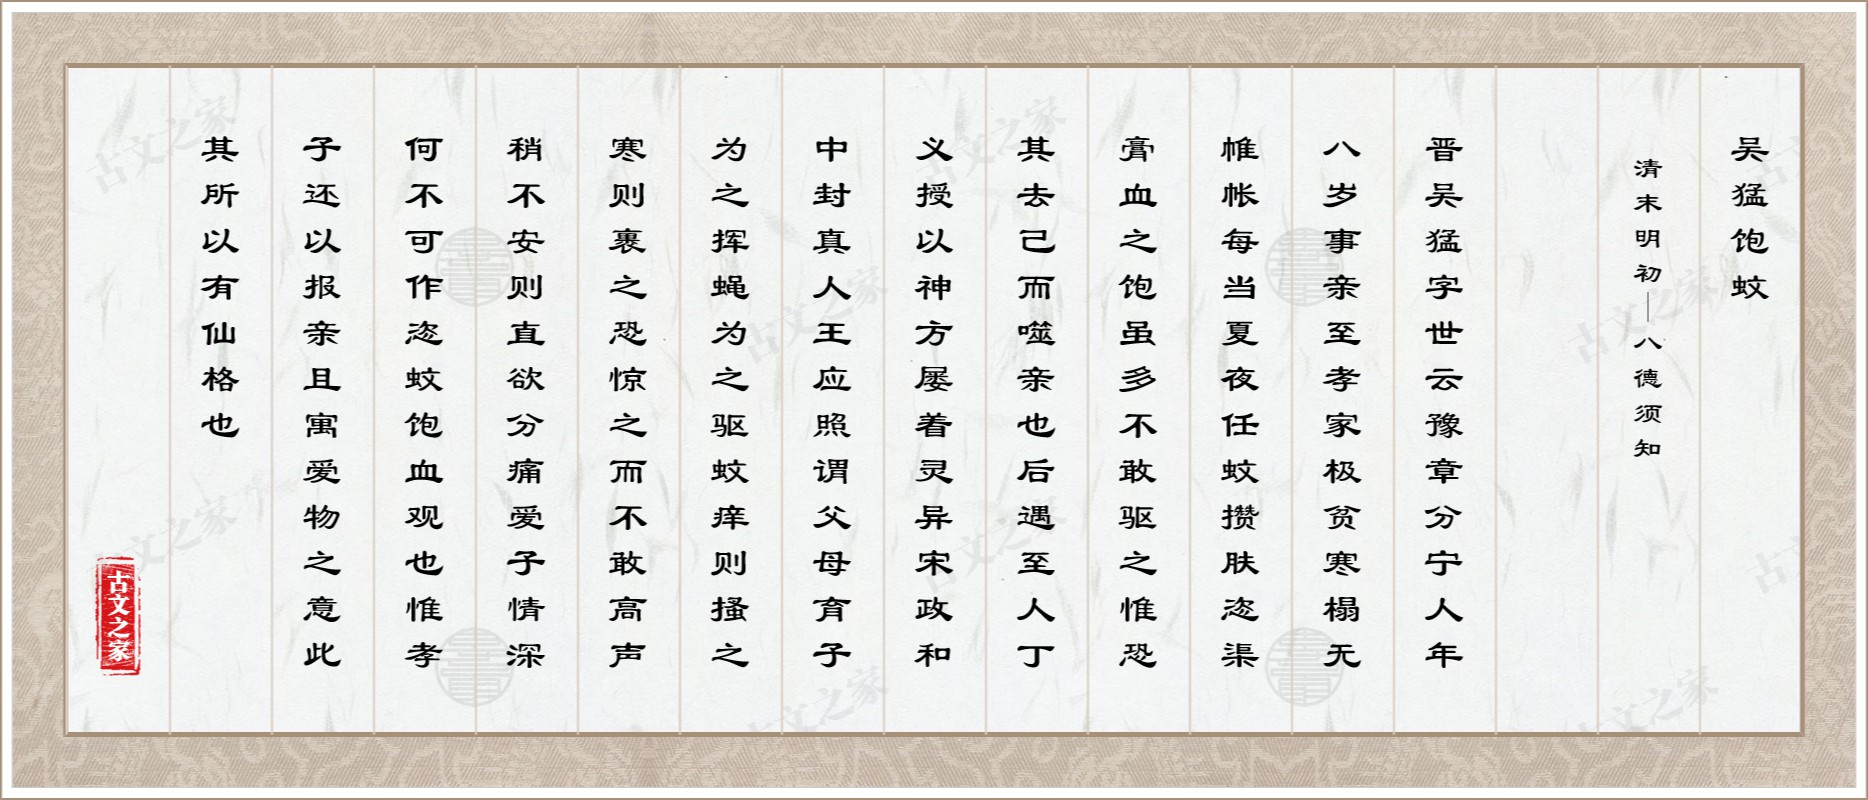 吴猛饱蚊
清末明初—八德须知
晋吴猛字世云豫章分宁人年
八岁事亲至孝家极贫寒榻无
帷帐每当夏夜任蚊攒肤恣渠
膏血之饱虽多不敢驱之惟恐
其去己而噬亲也后遇至人丁
义授以神方屡着灵异宋政和
中封真人王应照谓父母育子
为之挥蝇为之驱蚊痒则搔之
寒则裹之恐惊之而不敢高声
稍不安则直欲分痛爱子情深
何不可作恣蚊饱血观也惟孝
子还以报亲且寓爱物之意此
其所以有仙格也
古文之家